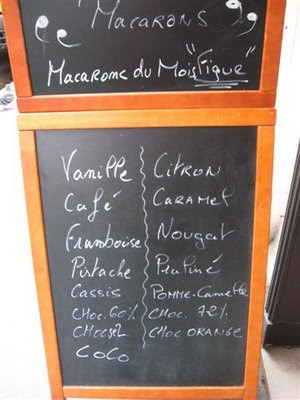 Macarons
Macarons du Mois "Figue"
Vanille
Café
Framboise
Pistache
Cassis
CHOC. 60%
CHOCSEL
COCO
CITRON
CARAMEL
Nougat
Praliné
POMME-Cannelle
CHOC. 72%
CHOC ORANGE